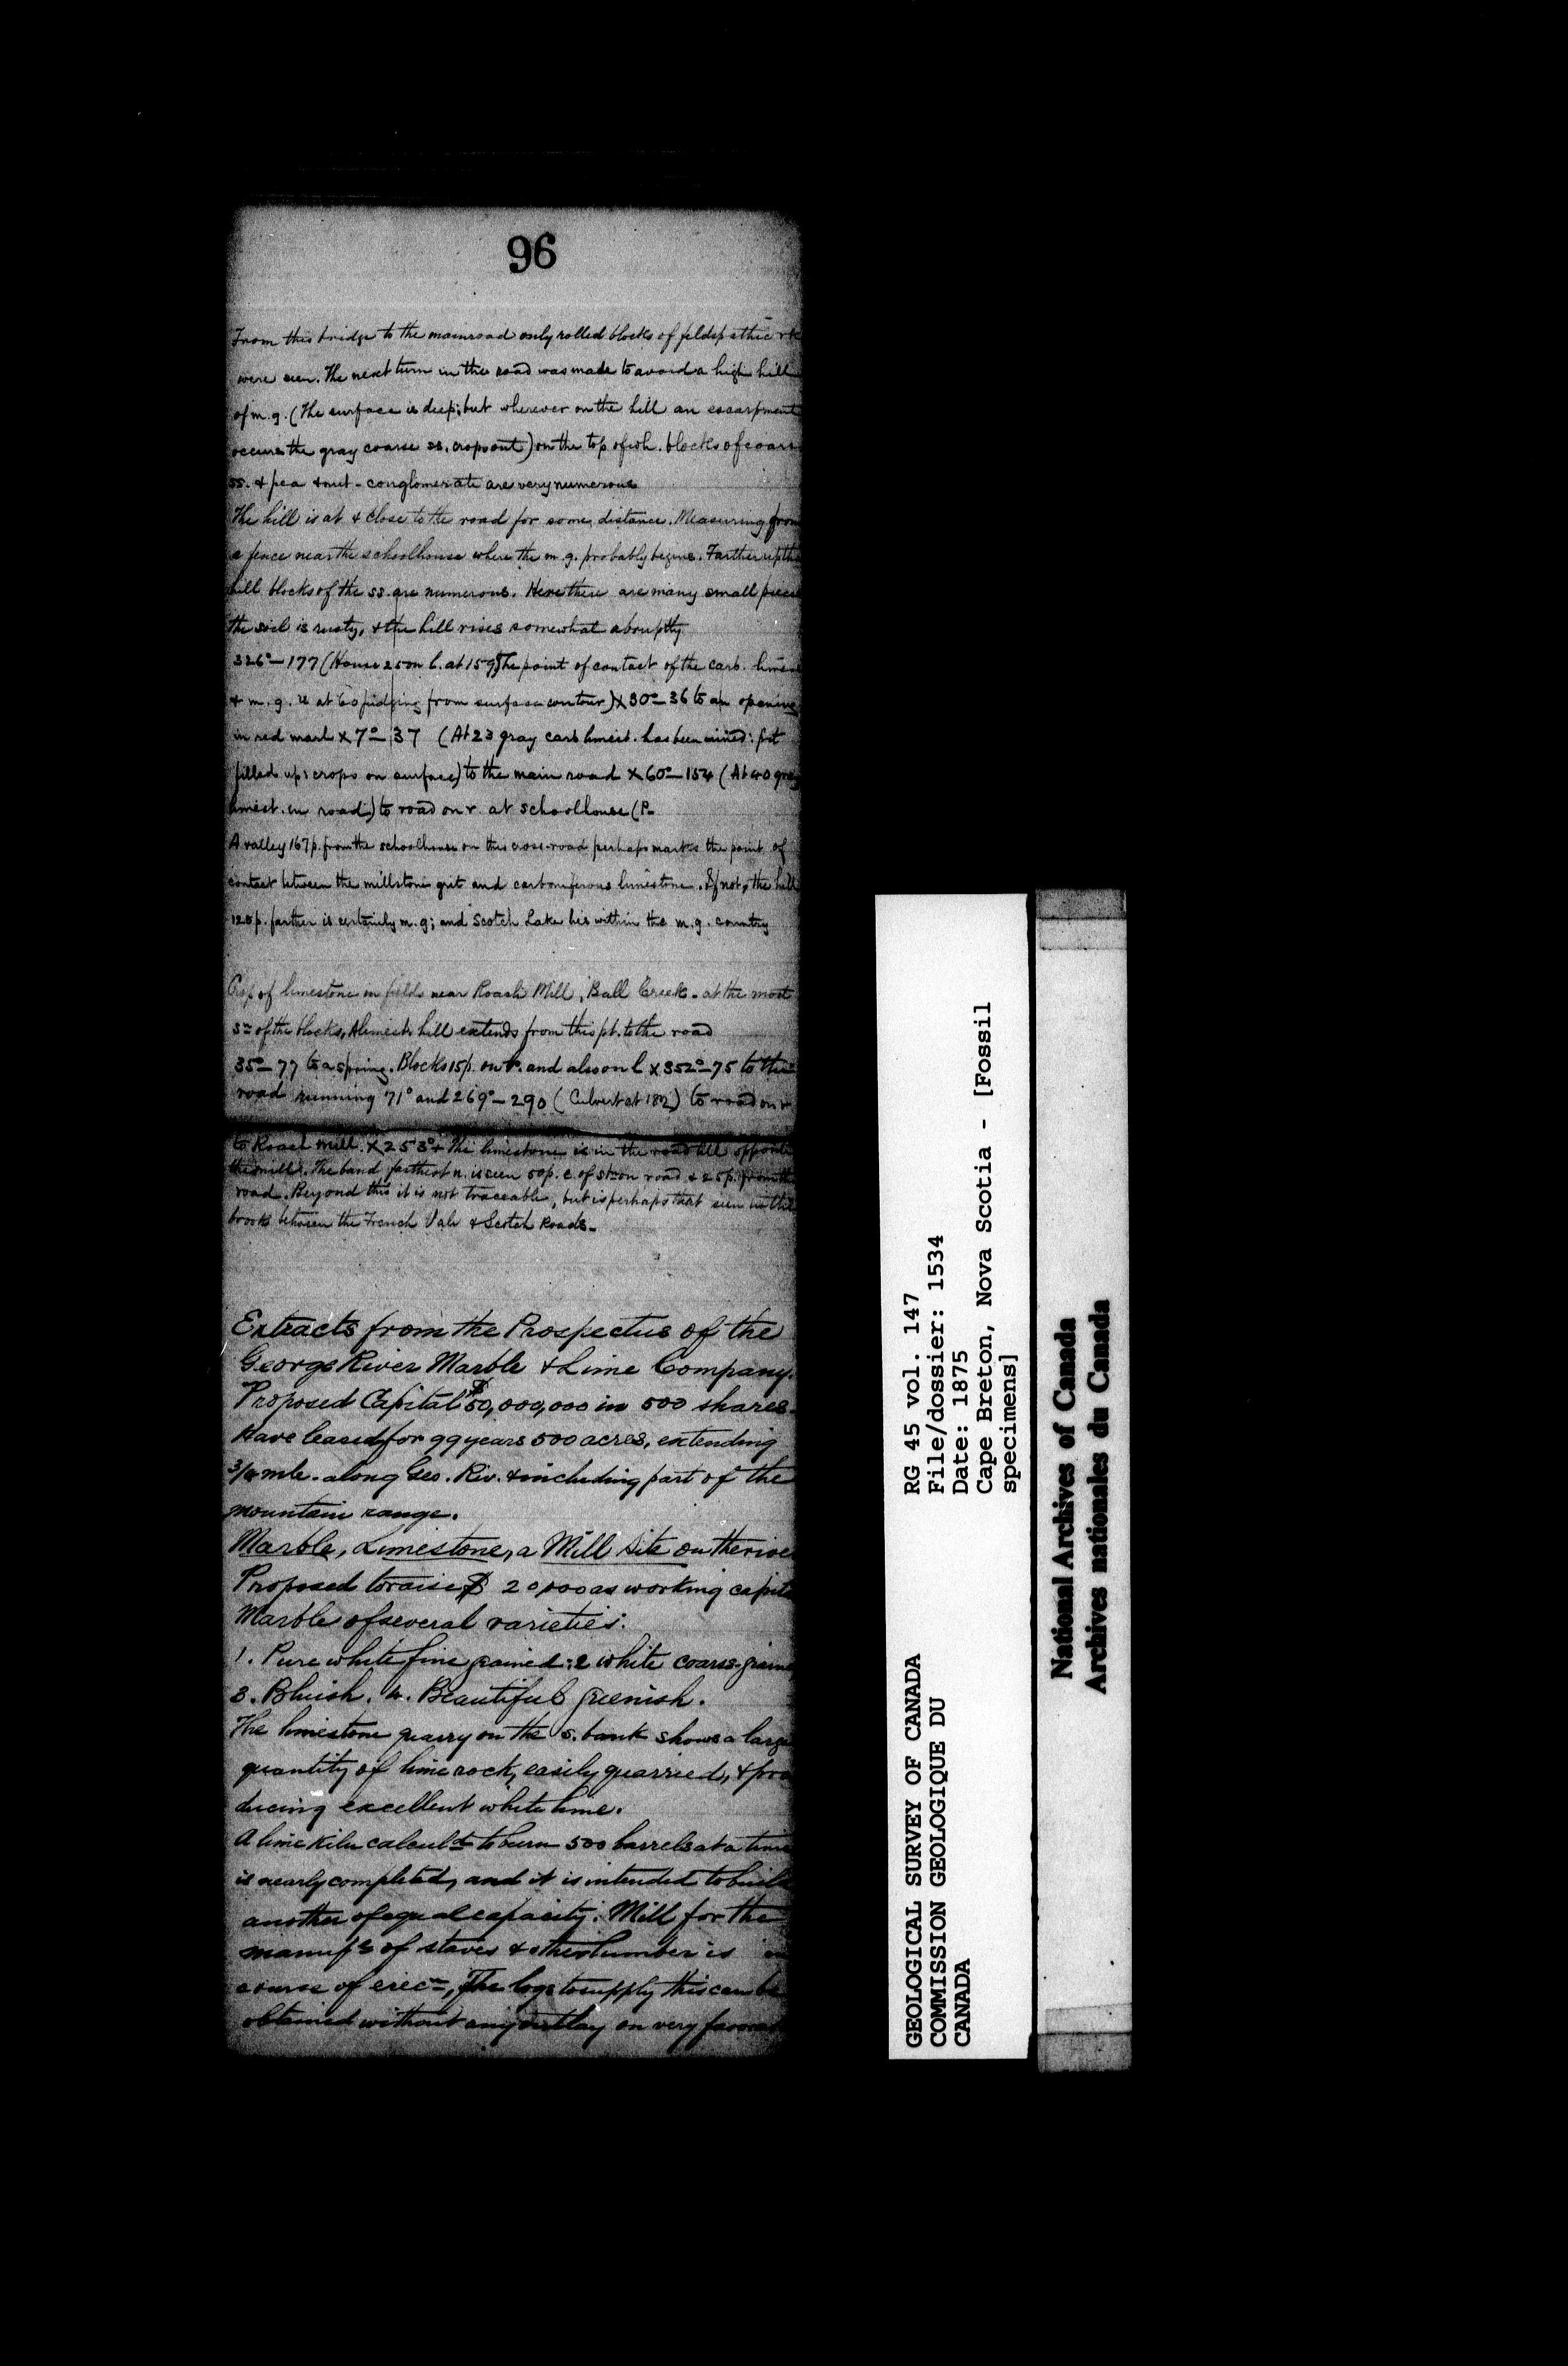 96
From this bridge to the mainroad only rolled blocks of feldspathic rk
were seen. The next turn in this road was made to avoid a high hill
of m.g. (The surface is deep; but wherever on the hill an escarpment
occurs the gray coarse ss. crops out) on the top of wh. blocks of coars
ss. & pea & nut-conglomerate are very numerous
The hill is at & close to the road for some distance. Measuring from
a fence near the schoolhouse where the m.g. probably begins. Farther up the
hill blocks of the ss. are numerous. Here there are many small pieces
the soil is rusty, & the hill rises somewhat abruptly
326°-177 (House 25 on l. at 159 The point of contact of the carb. limes
& m.g. is at 60 judging from surface contour) X 30°-36 to an opening
in red marl X 7°-37 (At 23 gray carb limest. has been mined: pit
filled up: crops on surface) to the main road X 60°-154 (At 40 gray
limest. in road) to road on r. at schoolhouse (P-
A valley 167 p. from the schoolhouse on this cross-road perhaps marks the point of
contact between the millstone grit and carboniferous limestone. If not, the hill
125 p. farther is certainly m.g; and Scotch Lake lies within the m.g. country
Crop of limestone in fields near Roach Mill, Ball Creek - at the most
sn of the blocks, A limest. hill extends from this pt. to the road
35°-77 to a spring. Blocks 15 p. on r. and also on l X 352°-75 to the
road running 71° and 269°-290 (Culvert at 182) to road on r
to Roach mill. X 253°+ The limestone is in the road till opposite
the mill. The band farthest n. is seen 50 p. e. of stn on road & 25 p. from the
road. Beyond this it is not traceable, but is perhaps that seen in the
brook between the French Vale & Scotch Roads-
Extracts from the Prospectus of the
George River Marble & Lime Company.
Proposed Capital $50,000,000 in 500 shares.
Have leased for 99 years 500 acres, extending
3/4 mle. along Geo. Riv. & including part of the
mountain range.
Marble, Limestone, a Mill Site on the rive
Proposed to raise $ 20,000 as working capita
Marble of several varieties:
1. Pure white fine grained: 2 white coarse-graine
3. Bluish. 4. Beautiful greenish.
The limestone quarry on the s. bank shows a large
quantity of lime rock, easily quarried, & pro
ducing excellent white lime.
A lime kiln calculd to burn 500 barrels at a time
is nearly completed, and it is intended to build
another of equal capacity. Mill for the
manufre of staves & other lumber is in
course of erecn, The logs to supply this can be
obtained without any outlay on very favora
GEOLOGICAL SURVEY OF CANADA
COMMISSION GEOLOGIQUE DU
CANADA
RG 45 vol. 147
File/dossier: 1534
Date: 1875
Cape Breton, Nova Scotia - [Fossil
specimens]
National Archives of Canada
Archives nationales du Canada